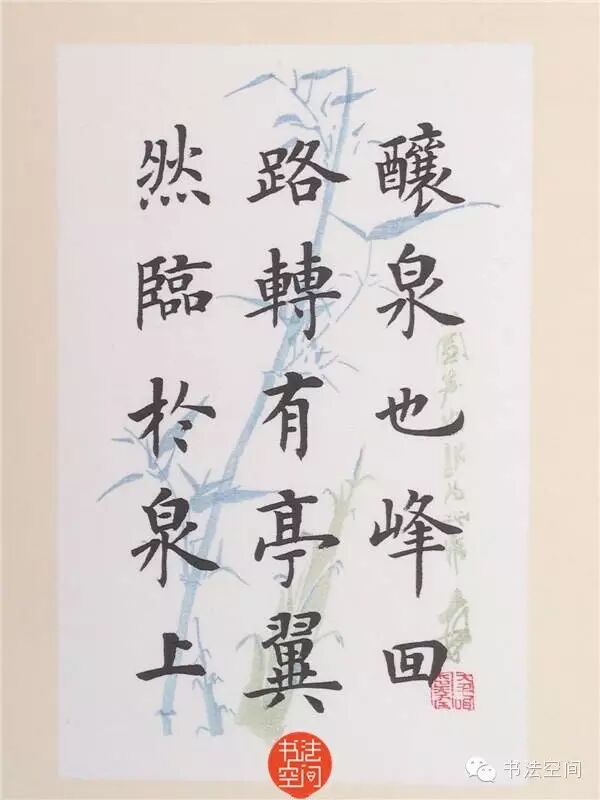 釀泉也峰回
路轉有亭翼
然臨於泉上
书法空间
书法空间